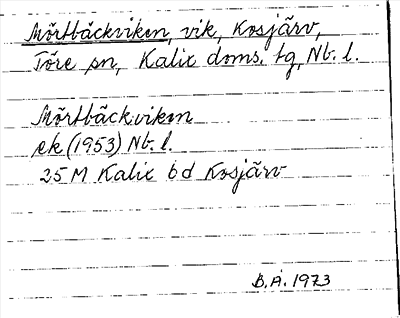 Mörtbäckviken, vik, Kosjärv,
Töre sn, Kalix doms. tg, Nb. l.
Mörtbäckviken
ek (1953) Nb. l.
25 M Kalix bd Kosjärv
B.Å. 1973